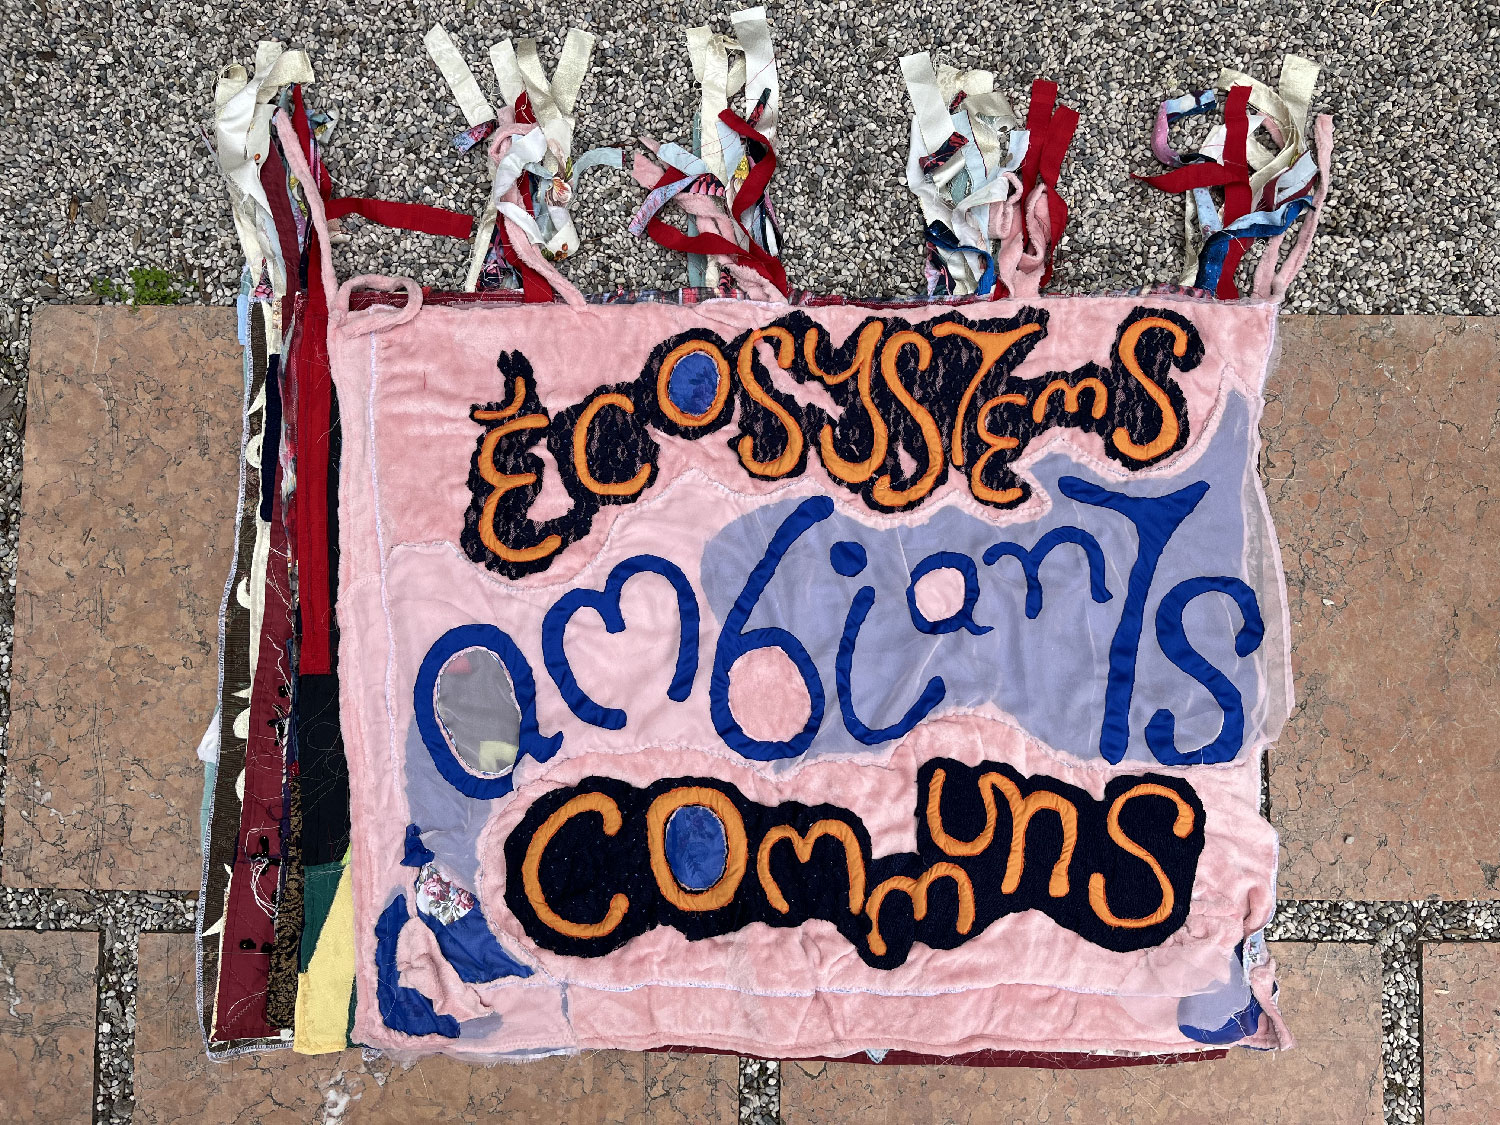 ÉCOSYSTEmS
ambianTS
COmmunS